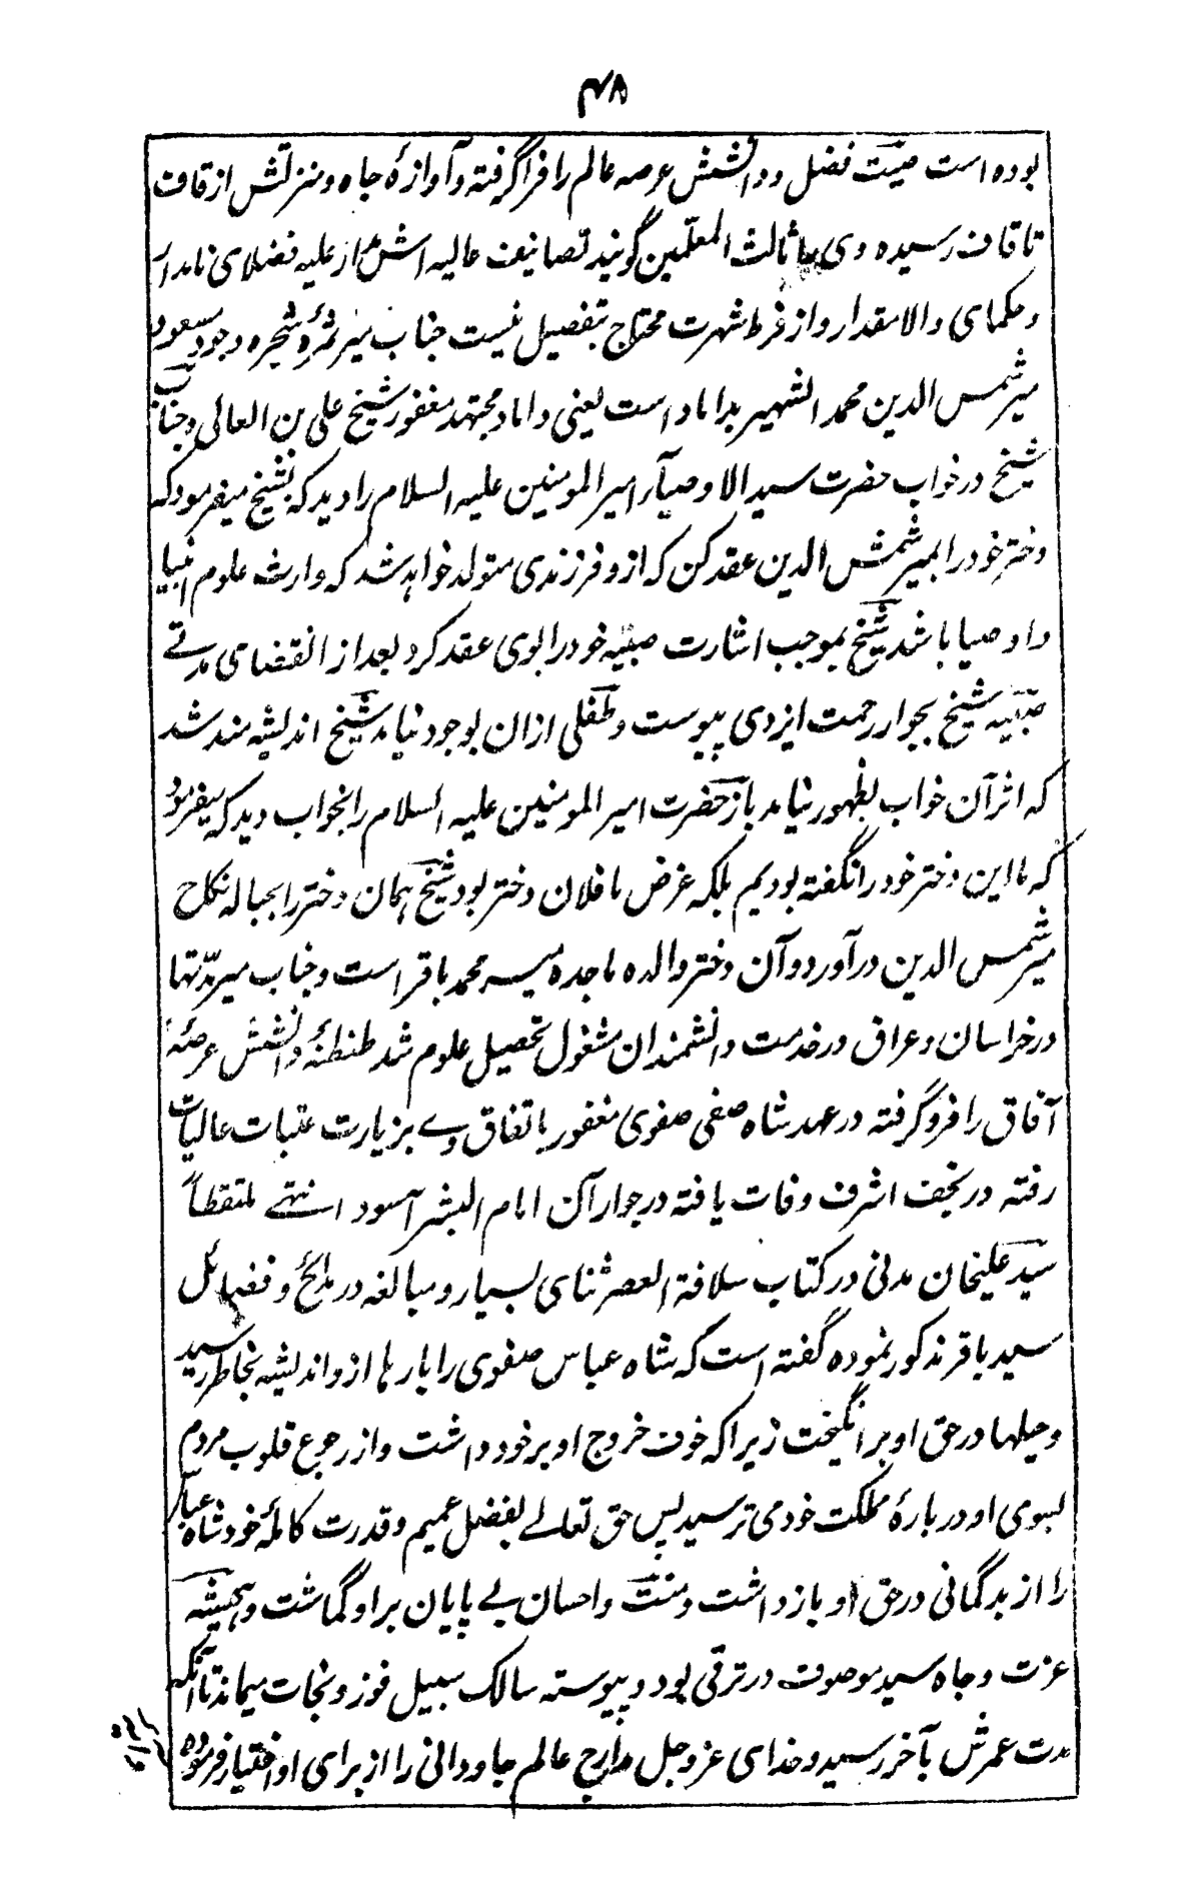 ۴۸
بوده است صیّت فضل و دانشش عرصه عالم را فرا گرفته و آوازهٔ جاه و منزلتش از قاف
تا قاف رسیده وی را ثالث المعلّمین گویند تصانیف عالیه اش از علیه فضلای نامدار
و حکمای والا مقدار و از فرط شهرت محتاج بتفصیل نیست جناب میر ثمرهٔ شجره وجود مسعود
میر شمس الدین محمد الشهیر بداماد است یعنی داماد مجتهد مغفور شیخ علی بن العالی و جناب
شیخ در خواب حضرت سید الاوصیآر امیر المومنین علیه السلام را دید که بشیخ میفرمود که
دختر خود را بمیر شمس الدین عقد کن که از و فرزندی متولد خواهد شد که وارث علوم انبیا
و اوصیا باشد شیخ بموجب اشارت صبیّه خود را بوی عقد کرد بعد از انقضای مدتے
صبّیه شیخ بجوار رحمت ایزدی پیوست و طفلی ازان بوجود نیامد شیخ اندیشه مند شد
که اثر آن خواب بظهور نیامد باز حضرت امیر المومنین علیه السلام را بخواب دید که میفرمود
که ما این دختر خود را نگفته بودیم بلکه غرض ما فلان دختر بود شیخ همان دختر را بحباله نکاح
میر شمس الدین در آورد و آن دختر والده ماجده میر محمد باقر است و جناب میر مدّتها
در خراسان و عراق در خدمت دانشمندان مشغول تحصیل علوم شد طنطنهٔ دانشش عرصهٔ
آفاق را فرو گرفته در عهد شاه صفی صفوی مغفور باتفاق وے بزیارت عتبات عالیات
رفته در نجف اشرف وفات یافته در جوار آن امام البشر آسود انتهے ملتقطاً
سید علیخان مدنی در کتاب سلافة العصر ثنای بسیار و مبالغه در مدائح و فضائل
سید باقر مذکور نموده گفته است که شاه عباس صفوی را بارها ازو اندیشه بخاطر رسید
و حیلها در حق او بر انگیخت زیرا که خوف خروج او بر خود داشت و از رجوع قلوب مردم
بسوی او در بارهٔ مملکت خود می ترسید پس حق تعالے بفضل عمیم و قدرت کاملهٔ خود شاه عباس
را از بدگمانی در حق او باز داشت و منت و احسان بے پایان بر او گماشت و همیشه
عزت و جاه سید موصوف در ترقی بود و پیوسته سالک سبیل فوز و نجات میماند تا آنکه
مدت عمرش بآخر رسید و خدای عز و جل مدارج عالم جاودانی را از برای او اختیار فرموده